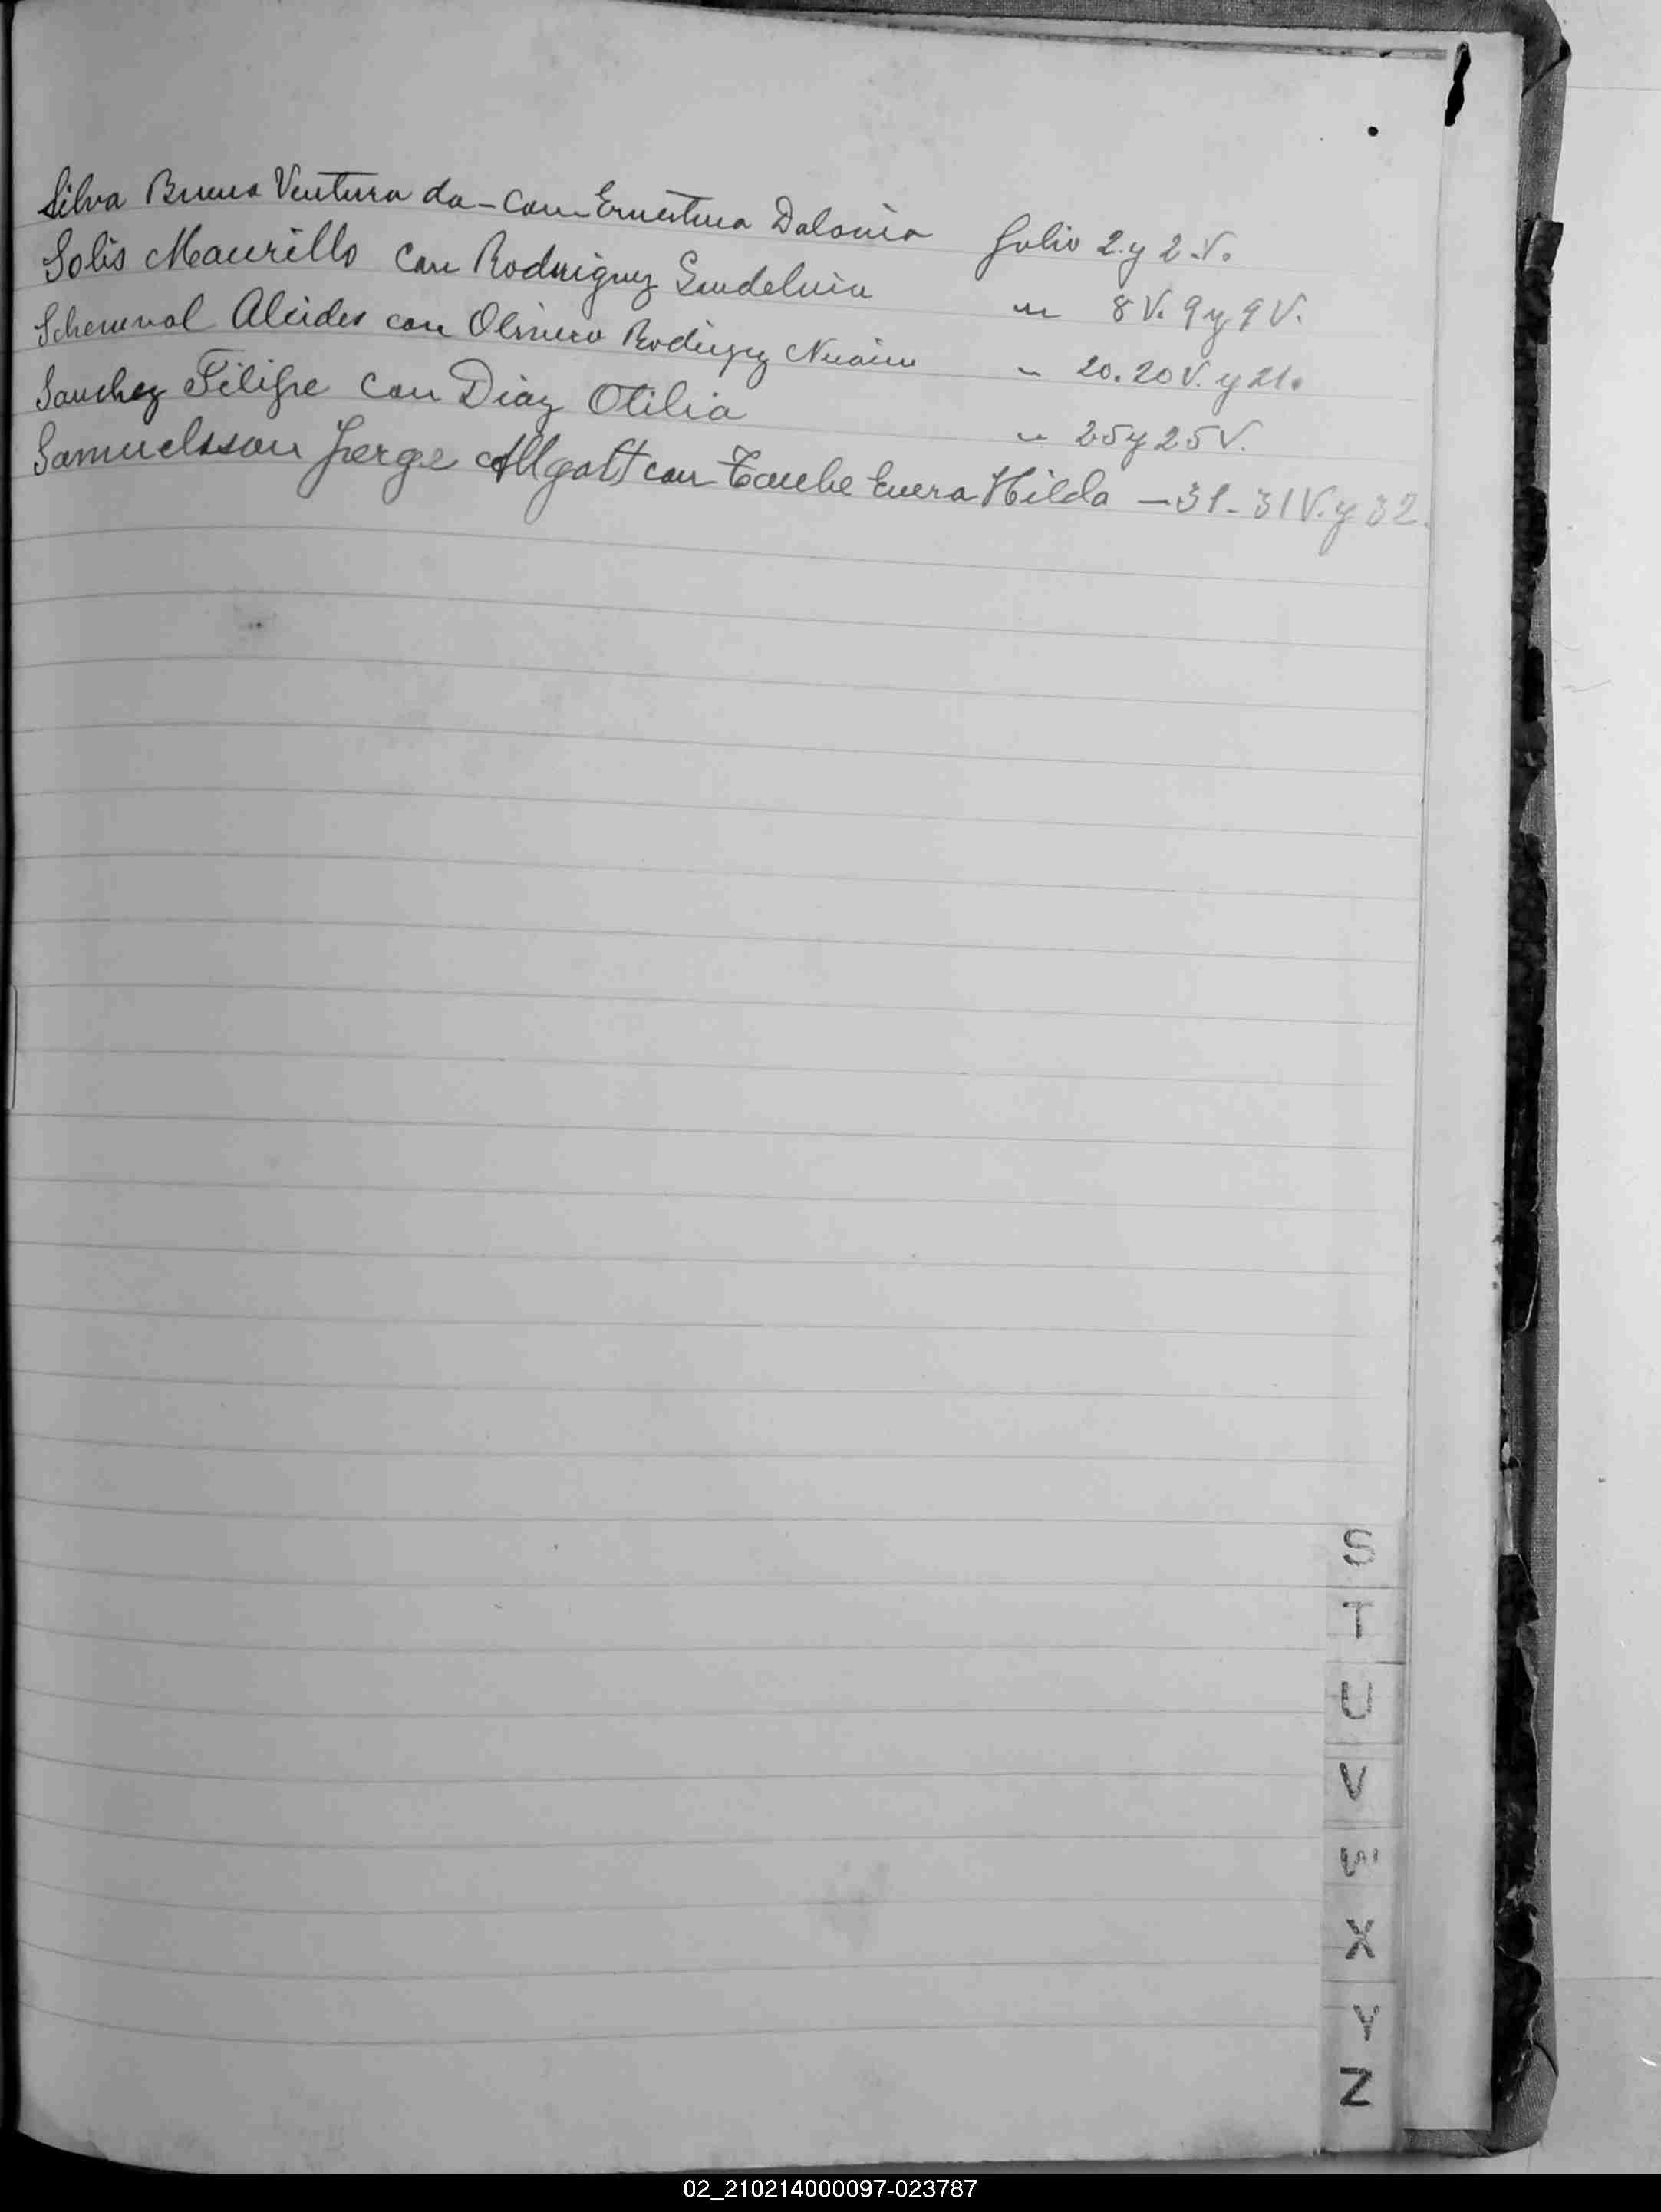 Silva Buena Ventura da - con Ernestina Dalonia folio 2. y 2. V.
Solis Maurillo con Rodriguez Gudelvia " 8 V. 9 y 9 V.
Alcides con Olivera Rodriguez " 20. 20 V. y 21.
Sanchez Felipe con Diaz Otilia " 25 y 25 V.
Samuelsson Jorge Allgott con Taube Euera Hilda - 31 - 31 V. y 32.
S
T
U
V
W
X
Y
Z
02_210214000097-023787